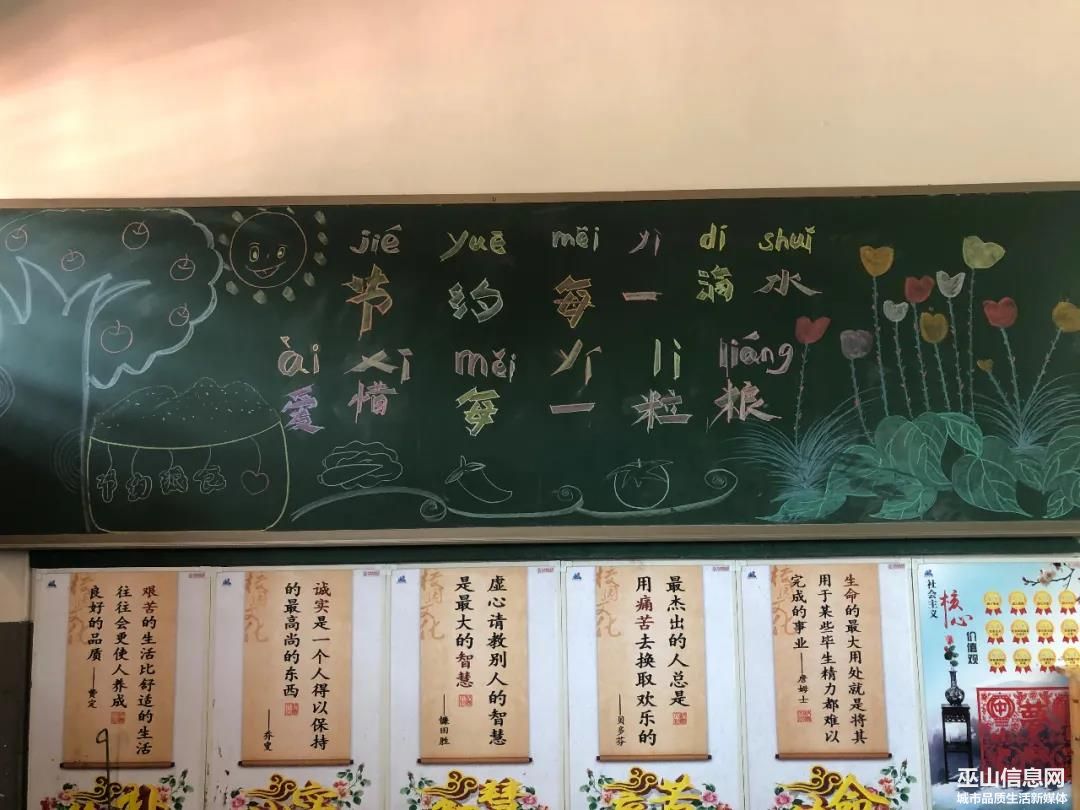 jié yuē měi yì dī shuǐ
节约每一滴水
ài xī měi yí lì liáng
爱惜每一粒粮
节约粮食
校园文化
艰苦的生活比舒适的生活
往往会更使人养成
良好的品质
——黄定
校园文化
诚实是一个人得以保持
的最高尚的东西
——乔叟
校园文化
虚心请教别人的智慧
是最大的智慧
——镰田胜
校园文化
最杰出的人总是
用痛苦去换取欢乐的
——贝多芬
校园文化
生命的最大用处就是将其
用于某些毕生精力都难以
完成的事业
——詹姆士
社会主义
核心
价值观
巫山信息网
城市品质生活新媒体